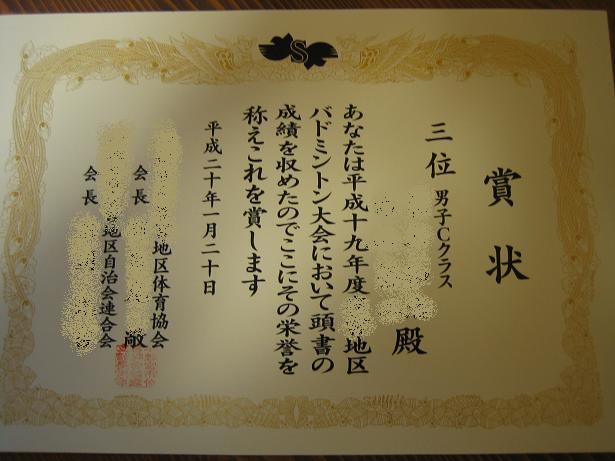 S
賞状
三位 男子Cクラス
殿
あなたは平成十九年度 地区
バドミントン大会において頭書の
成績を収めたのでここにその栄誉を
称えこれを賞します
平成二十年一月二十日
地区体育協会
会長 敏
地区自治会連合会
会長